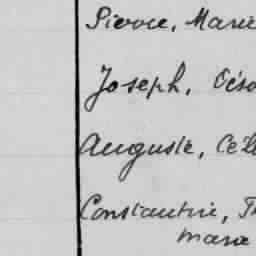 Pierre, Marie
Joseph, Césa
Auguste, Cél
Constantin, Th
Marie